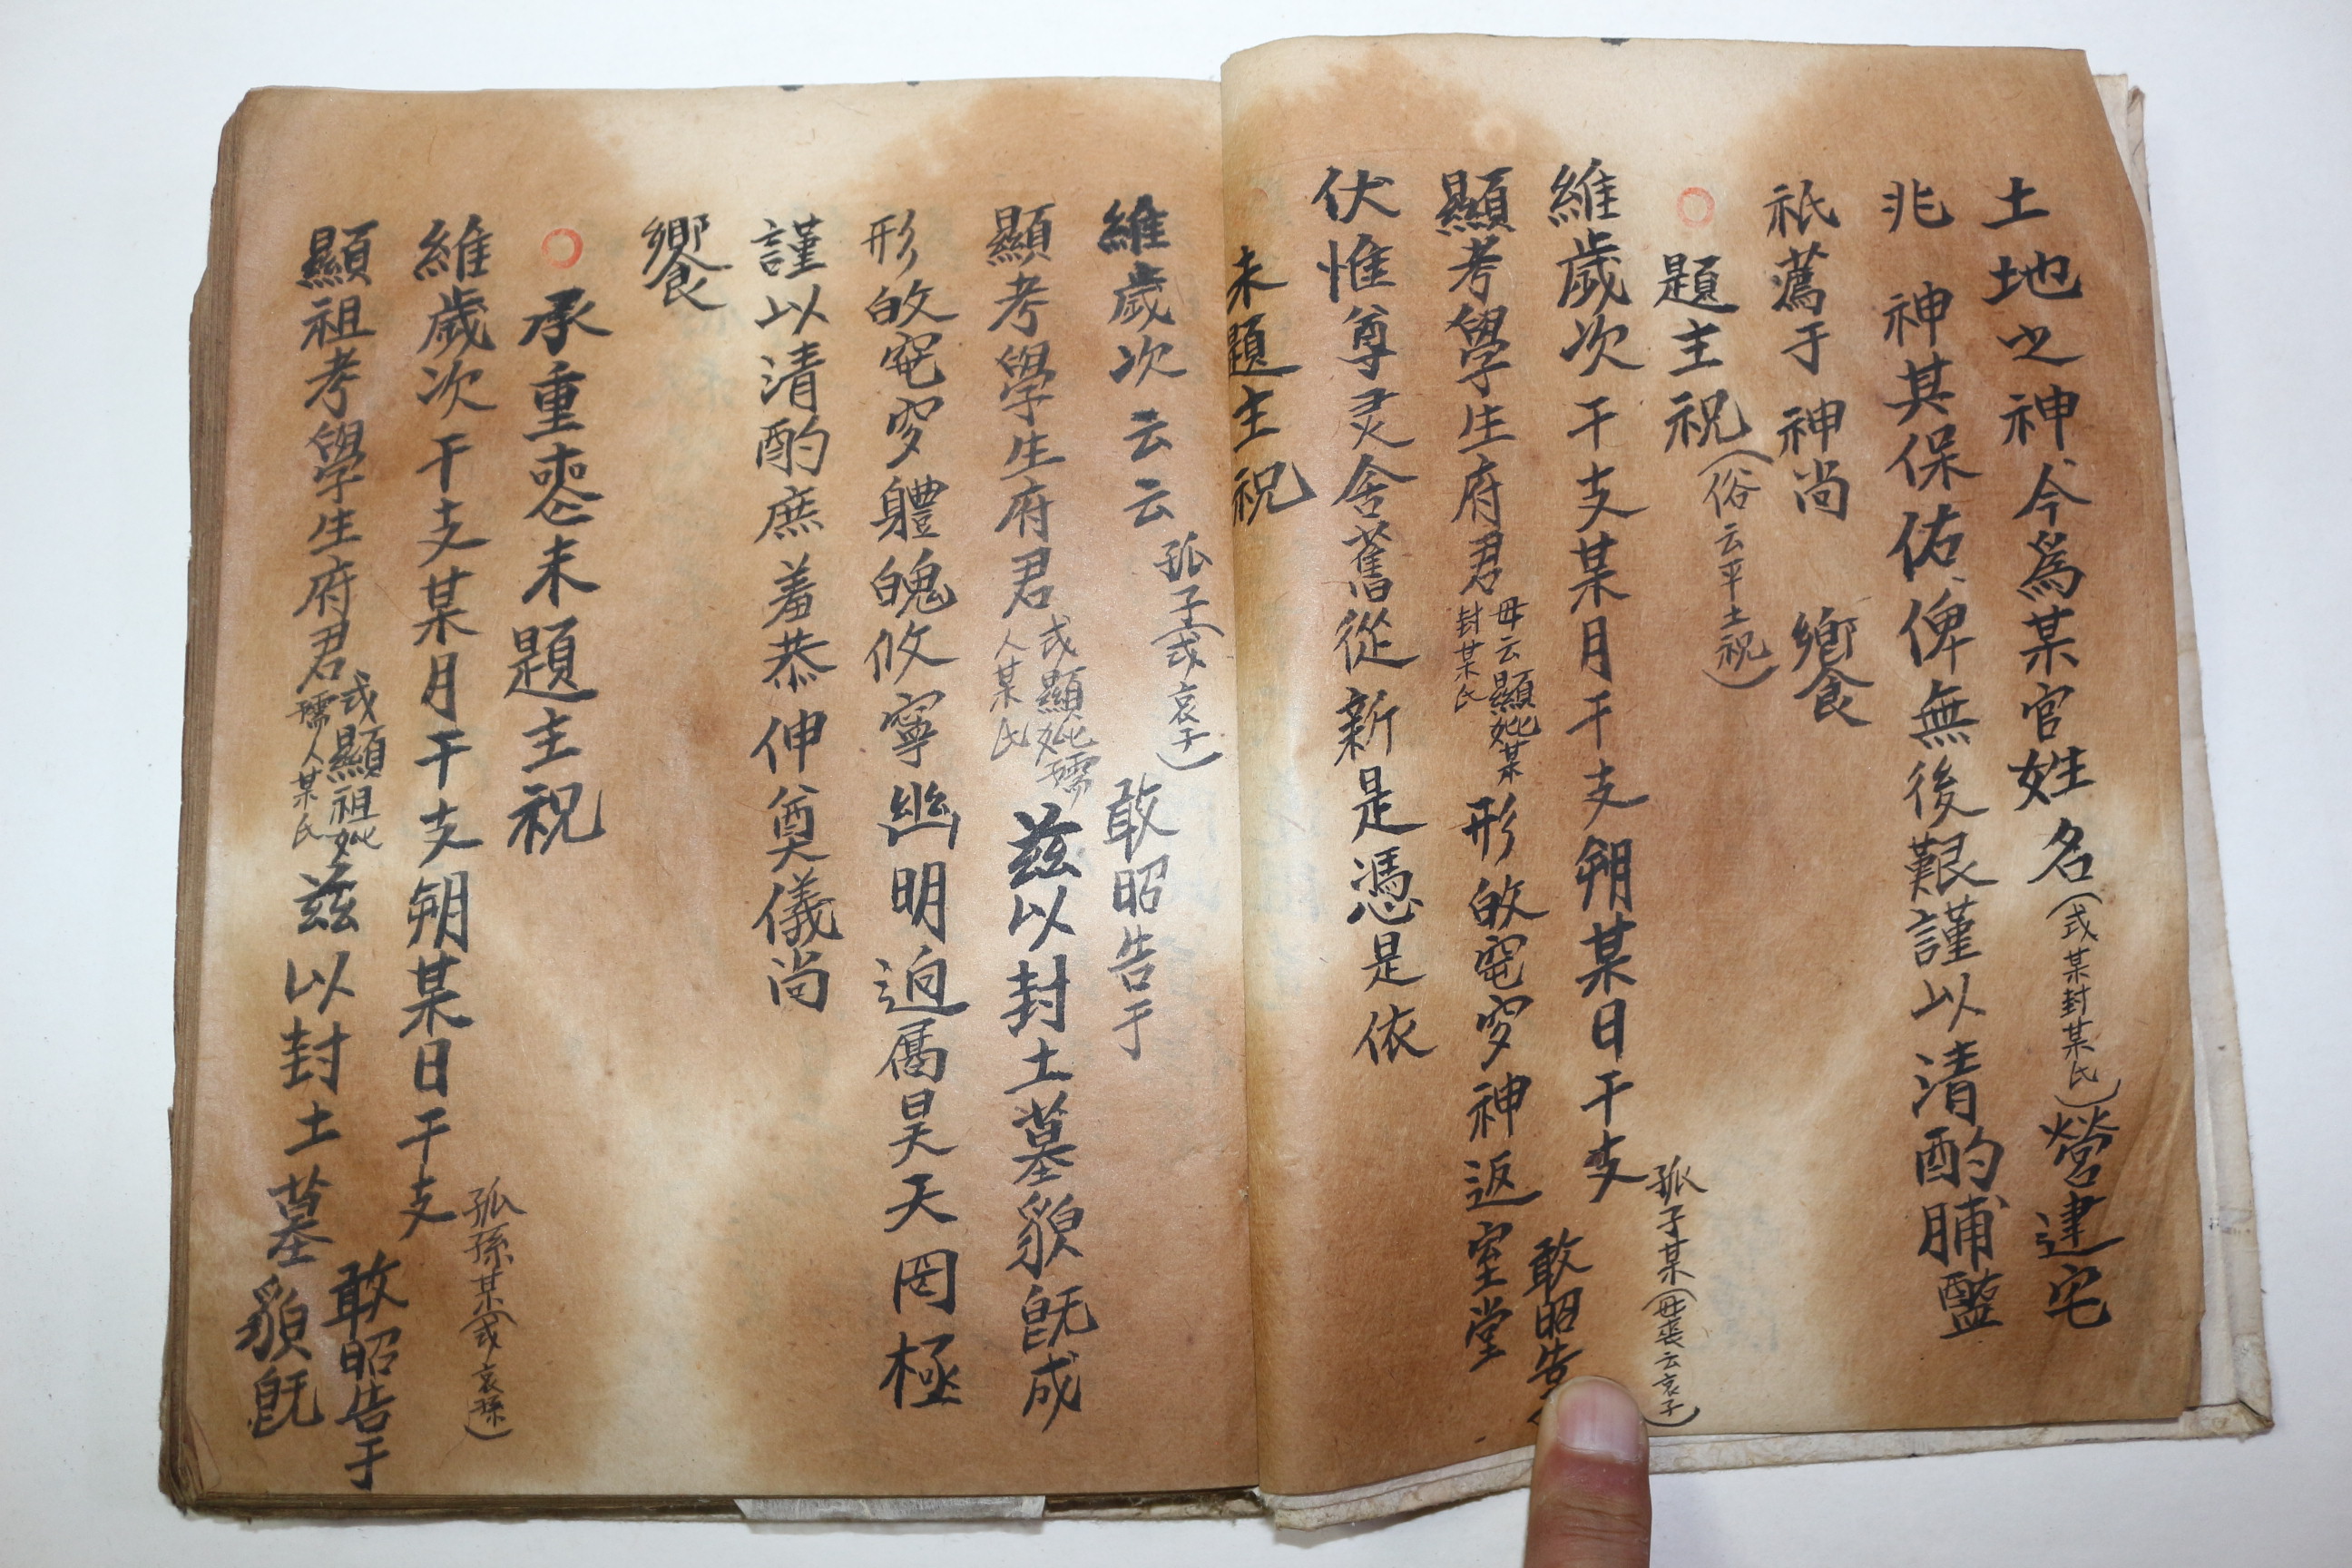 土地之神今爲某官姓名(或某封某氏)營建宅
兆 神其保佑俾無後艱謹以清酌脯醢
祇薦于神尚 饗
○題主祝(俗云平土祝)
維歲次干支某月干支朔某日干支孤子某(母喪云哀子)敢昭告
顯考學生府君母云顯妣某封某氏形皈窀穸神返室堂
伏惟尊灵舍舊從新是憑是依
未題主祝
維歲次云云孤子(或哀子)敢昭告于
顯考學生府君或顯妣孺人某氏兹以封土墓貌旣成
形皈窀穸軆魄攸寧幽明逈屬昊天罔極
謹以清酌庶羞恭伸奠儀尚
饗
○承重喪未題主祝
維歲次干支某月干支朔某日干支孤孫某(或哀孫)敢昭告于
顯祖考學生府君或顯祖妣孺人某氏兹以封土墓貌旣